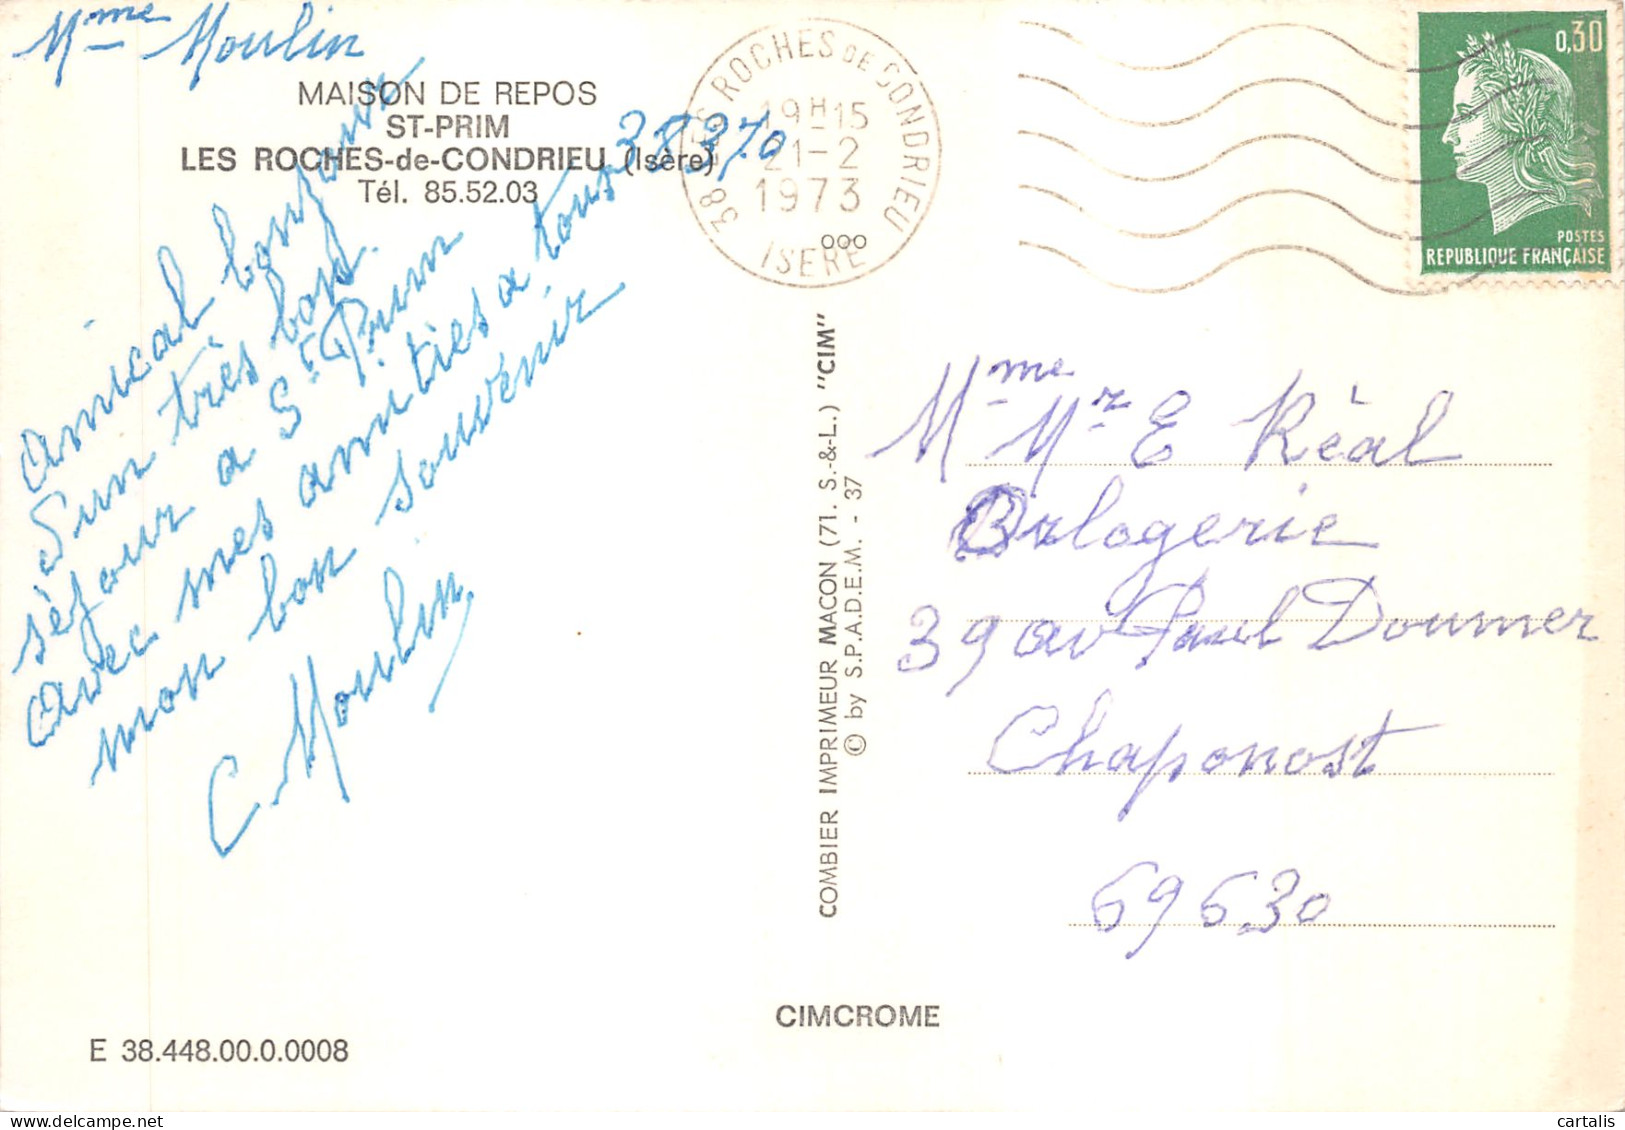 Mme Moulin
MAISON DE REPOS
ST-PRIM
LES ROCHES-de-CONDRIEU (Isère)
38370
Tél. 85.52.03
amical bonjour
d'un très bon
séjour a St Prim
avec mes amitiés a tous
mon bon souvenir
C. Moulin
38 LES ROCHES DE CONDRIEU
19H15
21-2
1973
ISERE
0,30
POSTES
REPUBLIQUE FRANÇAISE
Mme Mr E Rèal
Orlogerie
39 av Paul Doumer
Chaponost
69630
COMBIER IMPRIMEUR MACON (71. S.-&-L.) "CIM"
© by S.P.A.D.E.M. - 37
CIMCROME
E 38.448.00.0.0008
cartalis